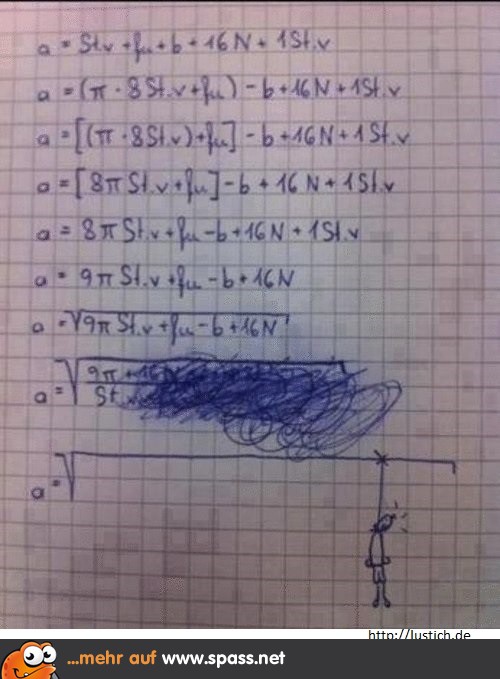 a = St.v + fu + b + 16 N + 1 St.v
a = (π · 8 St.v + fu) - b + 16 N + 1 St.v
a = [(π · 8 St.v) + fu] - b + 16 N + 1 St.v
a = [8π St.v + fu] - b + 16 N + 1 St.v
a = 8π St.v + fu - b + 16 N + 1 St.v
a = 9π St.v + fu - b + 16 N
a = √9π St.v + fu - b + 16 N
a = √
9π + 16 N
St.
a = √
http://lustich.de
...mehr auf www.spass.net